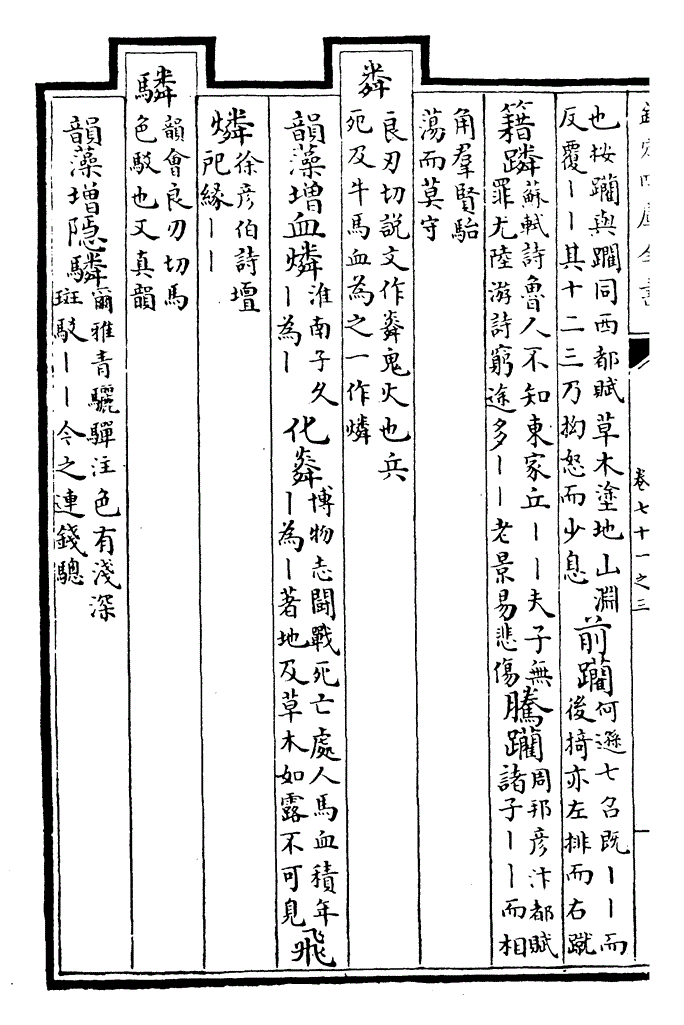 欽定四庫全書 卷七十一之三
也按躪與躙同西都賦草木塗地山淵
反覆丨丨其十二三乃拗怒而少息
前躪
何遜七召既丨丨而
後掎亦左排而右蹴
籍蹸
蘇軾詩魯人不知東家丘丨丨夫子無
罪尤陸游詩窮途多丨丨老景易悲傷
騰躪
周邦彦汴都賦
諸子丨丨而相
角羣賢駘
蕩而莫守
粦
良刃切説文作粦鬼火也兵
死及牛馬血為之一作燐
韻藻增血燐
淮南子久
丨為丨
化粦
博物志闘戰死亡處人馬血積年
丨為丨著地及草木如露不可見
飛
燐
徐彦伯詩壇
祀縁丨丨
驎
韻會良刃切馬
色駁也又真韻
韻藻增隱驎
爾雅青驪驒注色有淺深
斑駁丨丨今之連錢驄